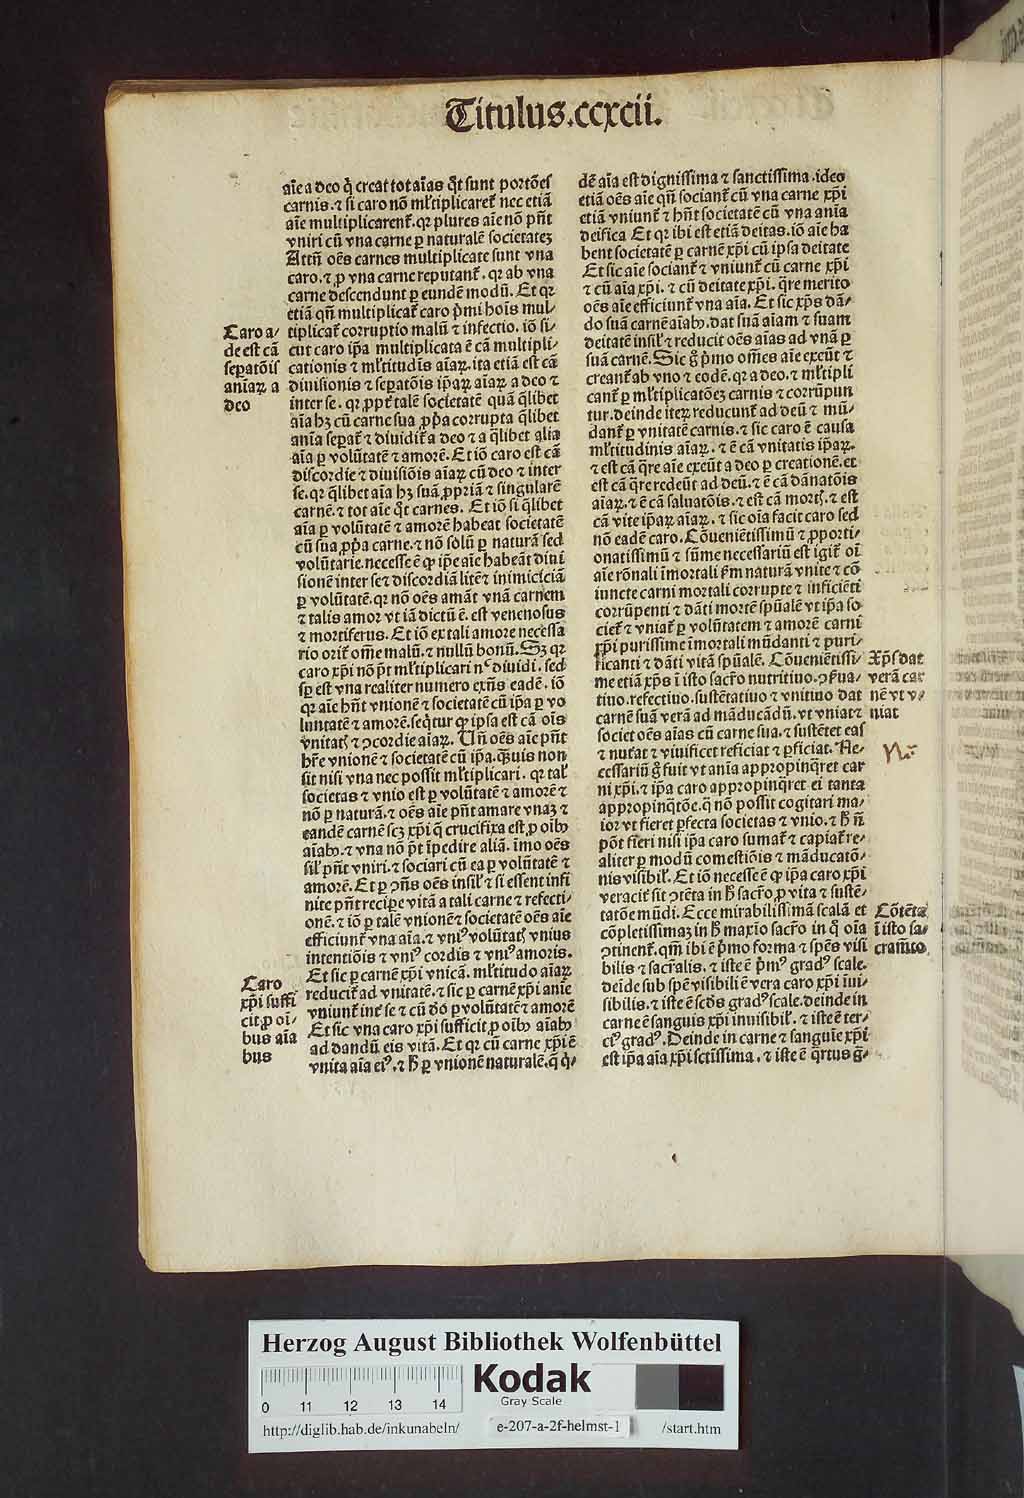 Titulus.ccxcii.
aīe a deo q̄ creat tot aīas q̄t sunt portōes
carnis. ⁊ si caro nō ml̓tiplicaret̉ nec etiā
aīe multiplicarent̉. qꝛ plures aīe nō pn̄t
vniri cū vna carne ꝑ naturalē societateꝫ
Attn̄ oēs carnes multiplicate sunt vna
caro. ⁊ ꝓ vna carne reputant̉. qꝛ ab vna
carne descendunt ꝑ eundē modū. Et qꝛ
etiā qn̄ multiplicat̉ caro p̄mi hoīs mul-
tiplicat̉ corruptio malū ⁊ infectio. iō si-
cut caro ip̄a multiplicata ē cā multipli-
cationis ⁊ ml̓titudīs aīaꝝ. ita etiā est cā
diuisionis ⁊ sepatōis ip̄aꝝ aīaꝝ a deo ⁊
inter se. qꝛ ꝓpt̉ talē societatē quā q̄libet
aīa hꝫ cū carne sua ꝓp̄a corrupta q̄libet
anīa sepat̉ ⁊ diuidit̉ a deo ⁊ a q̄libet alia
aīa ꝑ volūtatē ⁊ amorē. Et iō caro est cā
discordie ⁊ diuisiōis aīaꝝ cū deo ⁊ inter
se. qꝛ q̄libet aīa hꝫ suā ꝓpriā ⁊ singularē
carnē. ⁊ tot aīe q̄t carnes. Et iō si q̄libet
aīa ꝑ volūtatē ⁊ amorē habeat societatē
cū sua ꝓp̄a carne. ⁊ nō solū ꝑ naturā sed
volūtarie. necesse ē ꝙ ip̄e aīe habeāt diui
sionē inter se ⁊ discordiā litē ⁊ inimiciciā
ꝑ volūtatē. qꝛ nō oēs amāt vnā carnem
⁊ talis amor vt iā dictū ē. est venenosus
⁊ mortiferus. Et iō ex tali amore necessa
rio orit̉ om̄e malū. ⁊ nullū bonū. Sꝫ qꝛ
caro xp̄i nō pt̄ ml̓tiplicari nᶜ diuidi. sed
sp̄ est vna realiter numero exn̄s eadē. iō
qꝛ aīe hn̄t vnionē ⁊ societatē cū ip̄a ꝑ vo
luntatē ⁊ amorē. seq̄tur ꝙ ipsa est cā oīs
vnitatꝭ ⁊ ꝯcordie aīaꝝ. Vn̄ oēs aīe pn̄t
hr̄e vnionē ⁊ societatē cū ip̄a. q̄uis non
sit nisi vna nec possit ml̓tiplicari. qꝛ tal̓
societas ⁊ vnio est ꝑ volūtatē ⁊ amorē ⁊
nō ꝑ naturā. ⁊ oēs aīe pn̄t amare vnaꝫ ⁊
eandē carnē scꝫ xp̄i q̄ crucifixa est ꝓ oībꝰ
aīabꝰ. ⁊ vna nō pt̄ īpedire aliā. īmo oēs
sil̓ pn̄t vniri. ⁊ sociari cū ea ꝑ volūtatē ⁊
amorē. Et ꝑ ꝯn̄s oēs insil̓ ⁊ si essent infi
nite pn̄t recipe vitā a tali carne ⁊ refecti-
onē. ⁊ iō ꝑ talē vnionē ⁊ societatē oēs aīe
efficiunt̉ vna aīa. ⁊ vniꝰ volūtatꝭ vnius
intentiōis ⁊ vniꝰ cordis ⁊ vniꝰ amoris.
Et sic ꝑ carnē xp̄i vnicā. ml̓titudo aīaꝝ
reducit̉ ad vnitatē. ⁊ sic ꝑ carnē xp̄i anīe
vniunt̉ int̉ se ⁊ cū dō ꝑ volūtatē ⁊ amorē
Et sic vna caro xp̄i sufficit ꝓ oībꝰ aīabꝰ
ad dandū eis vitā. Et qꝛ cū carne xp̄i ē
vnita aīa eiꝰ. ⁊ ħ ꝑ vnionē naturalē. q̄ q̄-
Caro a-
de est cā
sepatōis
anīaꝝ a
deo
Caro
xp̄i suffi
cit ꝓ oī-
bus aīa
bus
dē aīa est dignissima ⁊ sanctissima. ideo
etiā oēs aīe qn̄ sociant̉ cū vna carne xp̄i
etiā vniunt̉ ⁊ hn̄t societatē cū vna anīa
deifica Et qꝛ ibi est etiā deitas. iō aīe ha
bent societatē ꝑ carnē xp̄i cū ipsa deitate
Et sic aīe sociant̉ ⁊ vniunt̉ cū carne xp̄i
⁊ cū aīa xp̄i. ⁊ cū deitate xp̄i. q̄re merito
oēs aīe efficiunt̉ vna aīa. Et sic xp̄s dā-
do suā carnē aīabꝰ. dat suā aīam ⁊ suam
deitatē insil̓ ⁊ reducit oēs aīas ad vnā ꝑ
suā carnē. Sic g̊ p̄mo om̄es aīe exeūt ⁊
creant̉ ab vno ⁊ eodē. qꝛ a deo. ⁊ ml̓tipli
cant̉ ꝑ ml̓tiplicatōeꝫ carnis ⁊ corrūpun
tur. deinde iteꝝ reducunt̉ ad deū ⁊ mū-
dant̉ ꝑ vnitatē carnis. ⁊ sic caro ē causa
ml̓titudinis aīaꝝ. ⁊ ē cā vnitatis ip̄aꝝ.
⁊ est cā q̄re aīe exeūt a deo ꝑ creationē. et
est cā q̄re redeūt ad deū. ⁊ ē cā dānatōis
aīaꝝ. ⁊ ē cā saluatōis. ⁊ est cā mortꝭ. ⁊ est
cā vite ip̄aꝝ aīaꝝ. ⁊ sic oīa facit caro sed
nō eadē caro. Cōueniētissimū ⁊ ꝓporti-
onatissimū ⁊ sūme necessariū est igit̉ oī
aīe rōnali īmortali ẜm naturā vnite ⁊ cō
iuncte carni mortali corrupte ⁊ inficiēti
corrūpenti ⁊ dāti mortē sp̄ualē vt ip̄a so
ciet̉ ⁊ vniat̉ ꝑ volūtatem ⁊ amorē carni
xp̄i purissime īmortali mūdanti ⁊ puri-
ficanti ⁊ dāti vitā sp̄ualē. Cōueniētissi-
me etiā xp̄s ī isto sacr̄o nutritiuo. ꝯẜua-
tiuo. refectiuo. sustētatiuo ⁊ vnitiuo dat
carnē suā verā ad māducādū. vt vniat ⁊
societ oēs aīas cū carne sua. ⁊ sustētet eas
⁊ nut̉at ⁊ viuificet reficiat ⁊ ꝑficiat. Ne-
cessariū g̊ fuit vt anīa appropinq̄ret car
ni xp̄i. ⁊ ip̄a caro appropinq̄ret ei tanta
appropinq̄tōe. q̄ nō possit cogitari ma-
ior vt fieret ꝑfecta societas ⁊ vnio. ⁊ ħ n̄
pōt fieri nisi ip̄a caro sumat̉ ⁊ capiat̉ re-
aliter ꝑ modū comestiōis ⁊ māducatō-
nis visibil̓. Et iō necesse ē ꝙ ip̄a caro xp̄i
veracit̉ sit ꝯtēta in ħ sacr̄o ꝑ vita ⁊ sustē-
tatōe mūdi. Ecce mirabilissimā scalā et
cōpletissimaꝫ in ħ maxīo sacr̄o in q̄ oīa
ꝯtinent̉. qm̄ ibi ē p̄mo forma ⁊ sp̄es visi
bilis ⁊ sacr̄alis. ⁊ iste ē p̄mꝰ gradꝰ scale.
deīde sub sp̄e visibili ē vera caro xp̄i īui-
sibilis. ⁊ iste ē scd̄s gradꝰ scale. deinde in
carne ē sanguis xp̄i inuisibil̓. ⁊ iste ē ter-
ciꝰ gradꝰ. Deinde in carne ⁊ sanguīe xp̄i
est ip̄a aīa xp̄i sctissima. ⁊ iste ē q̄rtus ḡ-
Xp̄s dat
verā car
nē vt v-
niat
Cōtēta
ī isto sa-
cram̄to
Herzog August Bibliothek Wolfenbüttel
0 11 12 13 14
Kodak
Gray Scale
http://diglib.hab.de/inkunabeln/ e-207-a-2f-helmst-1 /start.htm